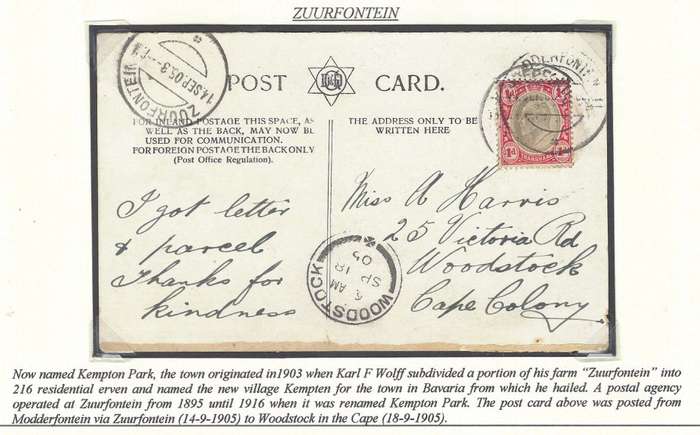 ZUURFONTEIN
ZUURFONTEIN
14 SEP 05
POST CARD.
FOR INLAND POSTAGE THIS SPACE, AS
WELL AS THE BACK, MAY NOW BE
USED FOR COMMUNICATION.
FOR FOREIGN POSTAGE THE BACK ONLY
(Post Office Regulation).
THE ADDRESS ONLY TO BE
WRITTEN HERE
1d 1d
TRANSVAAL
I got letter
& parcel
Thanks for
kindness
Miss A Harris
25 Victoria Rd
Woodstock
Cape Colony
WOODSTOCK
6 AM
SP 18
05
Now named Kempton Park, the town originated in1903 when Karl F Wolff subdivided a portion of his farm “Zuurfontein” into
216 residential erven and named the new village Kempten for the town in Bavaria from which he hailed. A postal agency
operated at Zuurfontein from 1895 until 1916 when it was renamed Kempton Park. The post card above was posted from
Modderfontein via Zuurfontein (14-9-1905) to Woodstock in the Cape (18-9-1905).